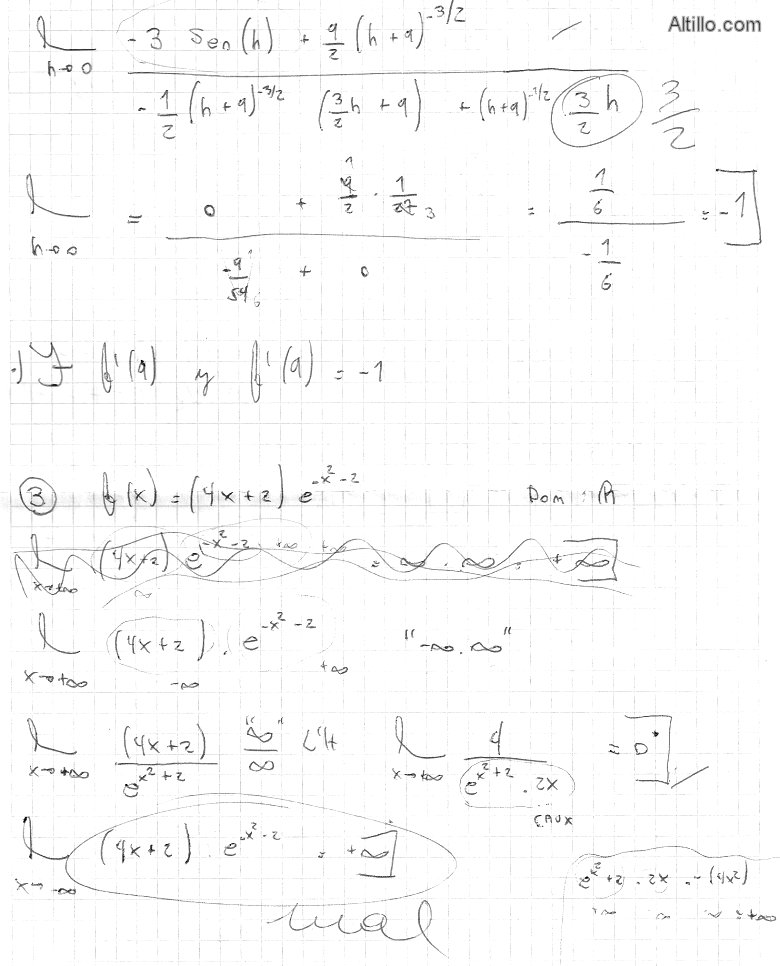 Altillo.com
l h→0 -3 Sen(h) + 9/2 (h+9)^-3/2
-1/2 (h+9)^-3/2 (3/2 h + 9) + (h+9)^-1/2 3/2 h 3/2
l h→0 = 0 + 9/2 · 1/27 3 = 1/6 = -1
-9/54 6 + 0 -1/6
·) ∃ f'(9) y f'(9) = -1
3 f(x) = (4x+2) e^-x²-2 Dom: R
l x→+∞ (4x+2) e^-x²-2 = ∞ · ∞ = +∞
l x→+∞ (4x+2) · e^-x²-2 "-∞.∞"
-∞ +∞
l x→+∞ (4x+2)/e^x²+2 "∞"/∞ L'H l x→+∞ 4/(e^x²+2 · 2x) = 0
l x→-∞ (4x+2) · e^-x²-2 = +∞
e^x²+2 · 2x
mal